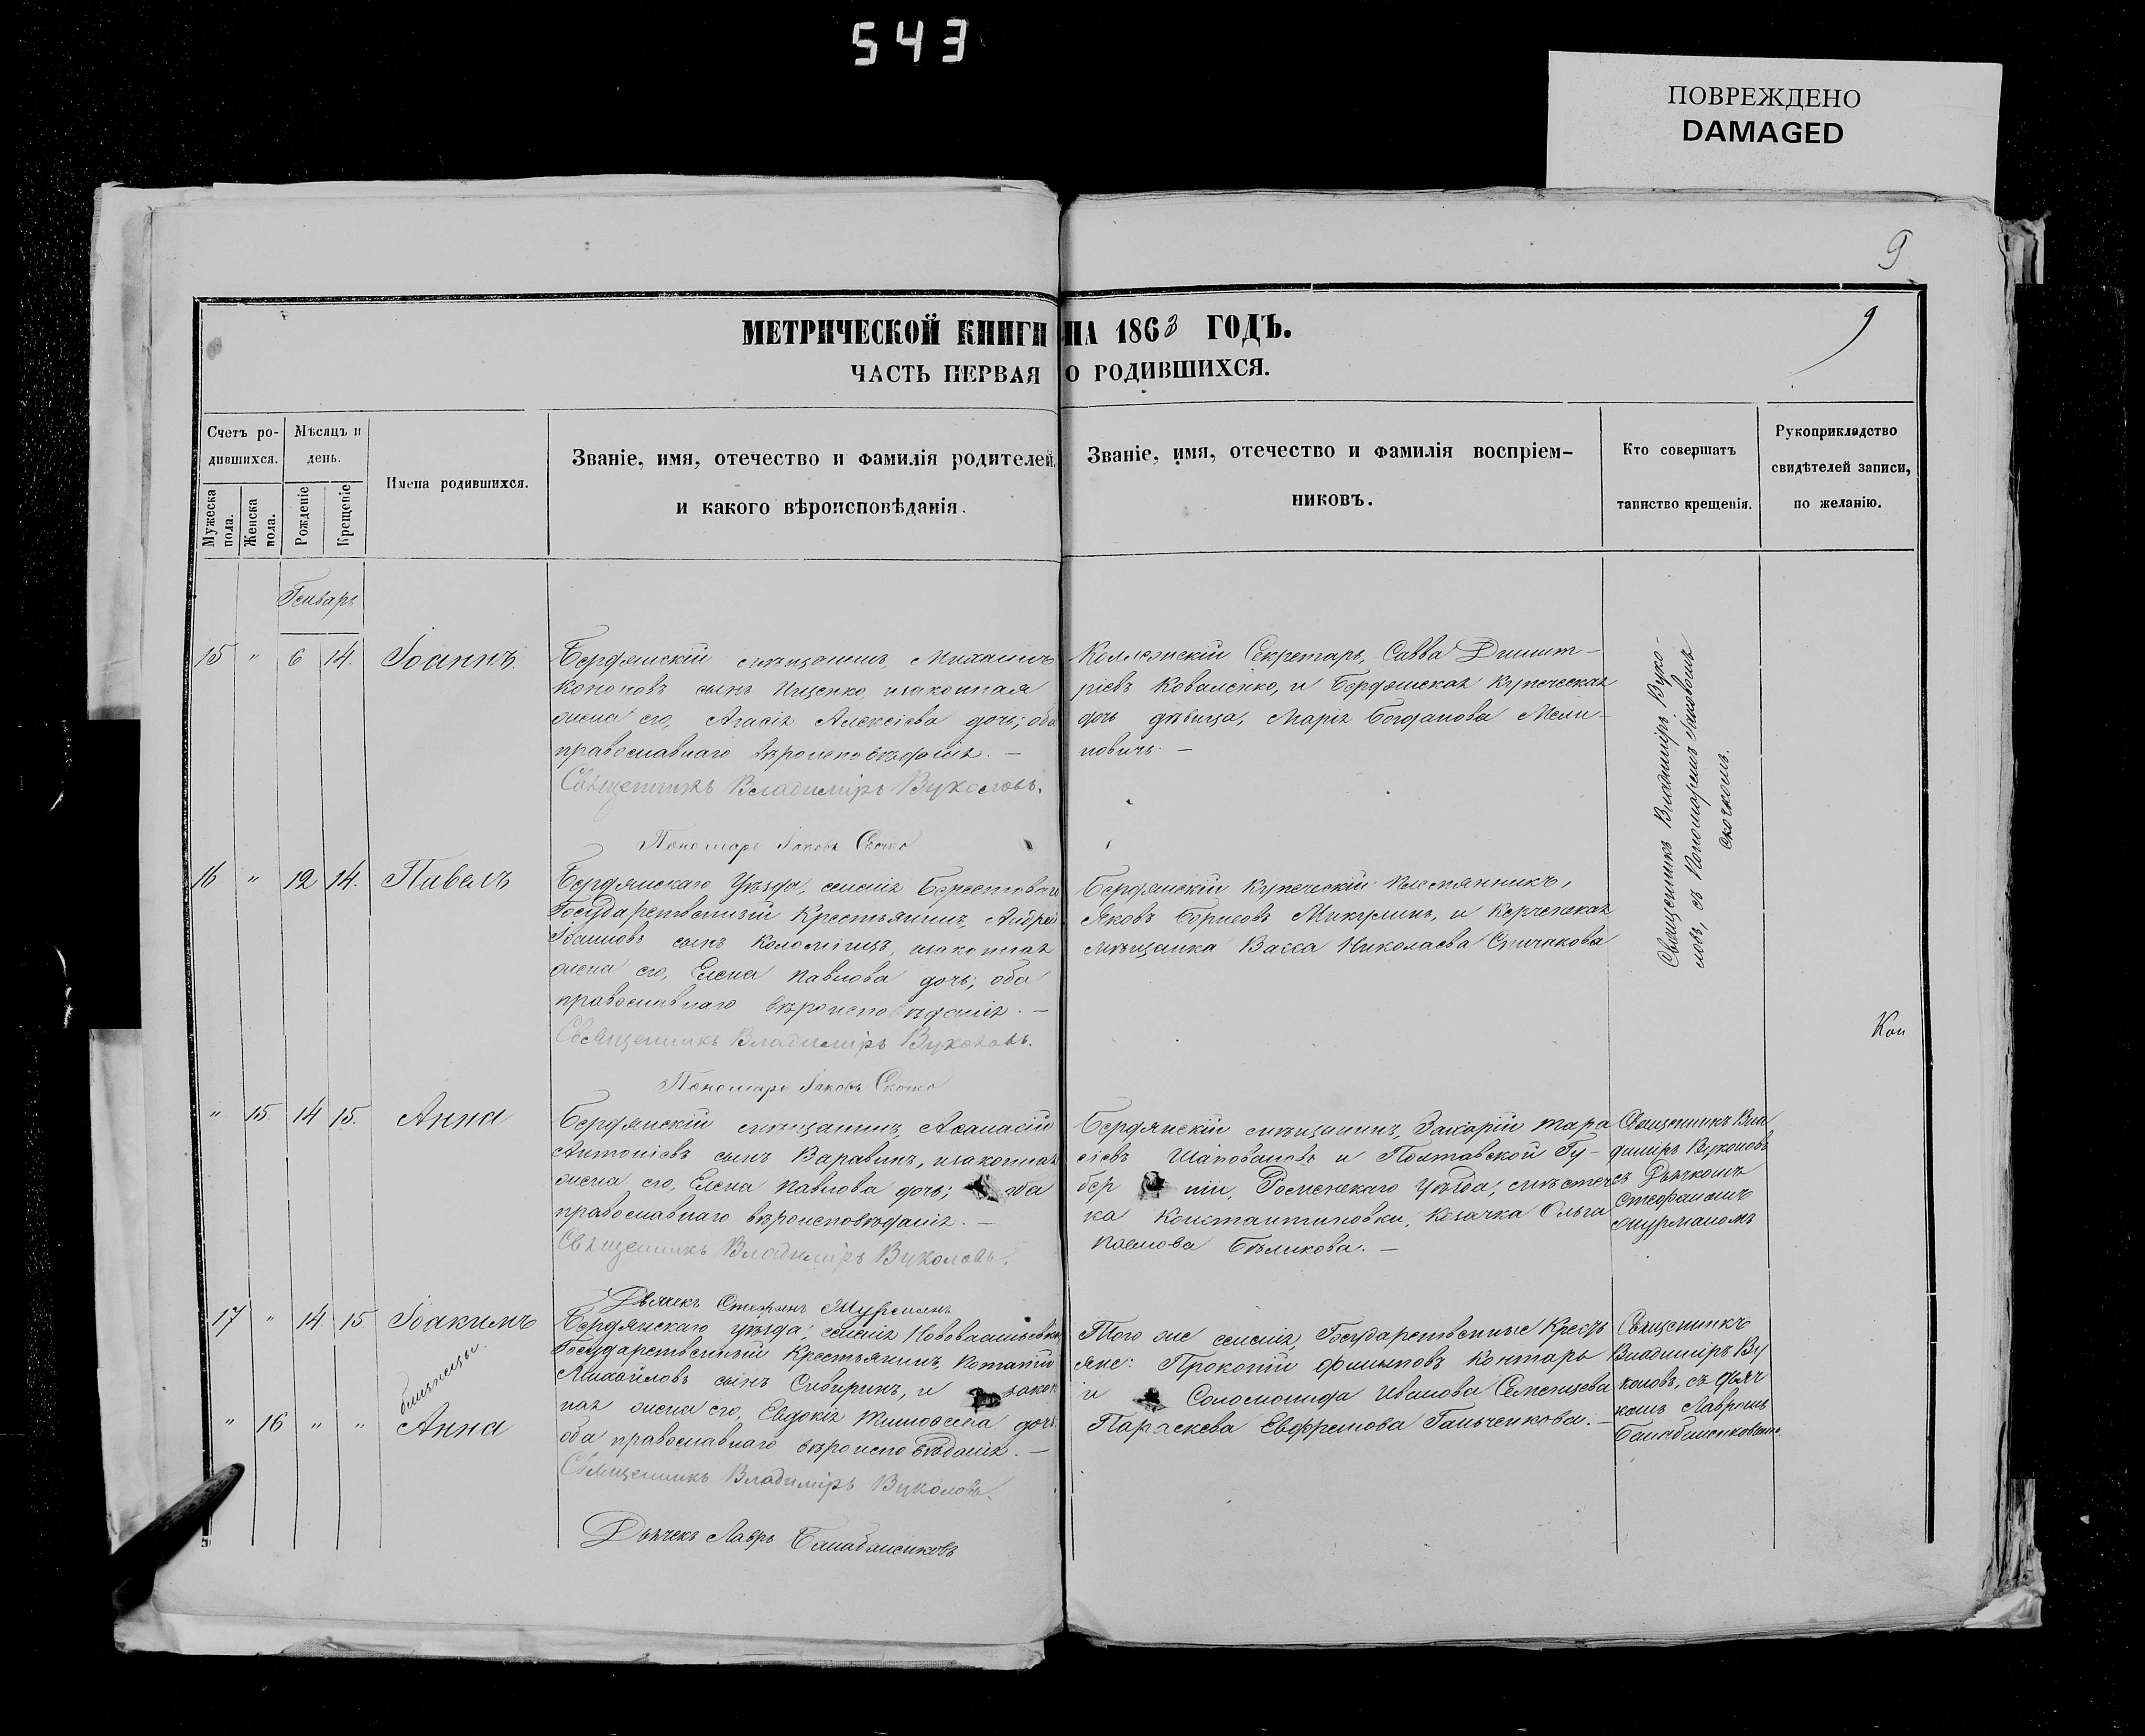 543
ПОВРЕЖДЕНО
DAMAGED
9
9
МЕТРИЧЕСКОЙ КНИГИ НА 1863 ГОДЪ.
ЧАСТЬ ПЕРВАЯ О РОДИВШИХСЯ.
Счетъ ро-
дившихся.
Мужеска
пола.
Женска
пола.
Мѣсяцъ и
день.
Рожденіе
Крещеніе
Имена родившихся.
Званіе, имя, отечество и фамилія родителей,
и какого вѣроисповѣданія.
Званіе, имя, отечество и фамилія воспріем-
никовъ.
Кто совершатъ
таинство крещенія.
Рукоприкладство
свидѣтелей записи,
по желанію.
Генварь
15 " 6 14. Іоаннъ.
Бердянскій мѣщанинъ, Михаилъ
Кононовъ сынъ Ищенко, изаконная
жена его, Агаѳія Алексіева дочь; оба
православнаго вѣроисповѣданія. —
Священникъ Владиміръ Вуколовъ.
Пономарь Іаковъ
Коллежскій Секретарь, Савва Димит-
ріевъ Коваленко, и Бердянская купеческая
дочь дѣвица, Марія Богданова Мели-
новичъ. —
Священникъ Владиміръ Вуко-
ловъ, съ Пономаремъ Іаковомъ
16 " 12 14. Павелъ
Бердянскаго Уѣзда, селенія Берестоваго
Государственный Крестьянинъ, Андрей
Іоанновъ сынъ Коломіицъ, изаконная
жена его, Елена Павлова дочь; оба
православнаго вѣроисповѣданія. —
Священникъ Владиміръ Вуколовъ.
Пономарь Іаковъ
Бердянскій купеческій племянникъ,
Яковъ Борисовъ Микулинъ, и Керченская
мѣщанка Васса Николаева Спичакова
Коп
" 15. 14 15. Анна
Бердянскій мѣщанинъ, Аѳанасій
Антоніевъ сынъ Варавинъ, изаконная
жена его, Елена Павлова дочь; оба
православнаго вѣроисповѣданія. —
Священникъ Владиміръ Вуколовъ.
Дьячекъ Стефанъ Шурманъ
Бердянскій мѣщанинъ, Захарій Тара
сіевъ Шаповаловъ и Полтавской Гу-
бер ніи, Роменскаго Уѣзда, мѣстеч
ка Константиновки, Козачка Ольга
Павлова Бѣликова. —
Священникъ Вла
диміръ Вуколовъ
съ Дьячкомъ
Стефаномъ
Шурманомъ
17 " 14 15 Іоакимъ
близнецы.
" 16 " " Анна
Бердянскаго уѣзда, селенія Нововасильевки
Государственный Крестьянинъ, Потапій
Михайловъ сынъ Сибиринъ, и закон
ная жена его, Евдокія дочь
оба православнаго вѣроисповѣданія. —
Священникъ Владиміръ Вуколовъ.
Дьячекъ Лавръ
Того же селенія, Государственные Кресть
яне: Прокопій Филиповъ Контарь
и Соломонида Иванова Семенцева
Параскева Евфремова Гальченкова. —
Священникъ
Владиміръ Ву
коловъ, съ дьяч
комъ Лавромъ